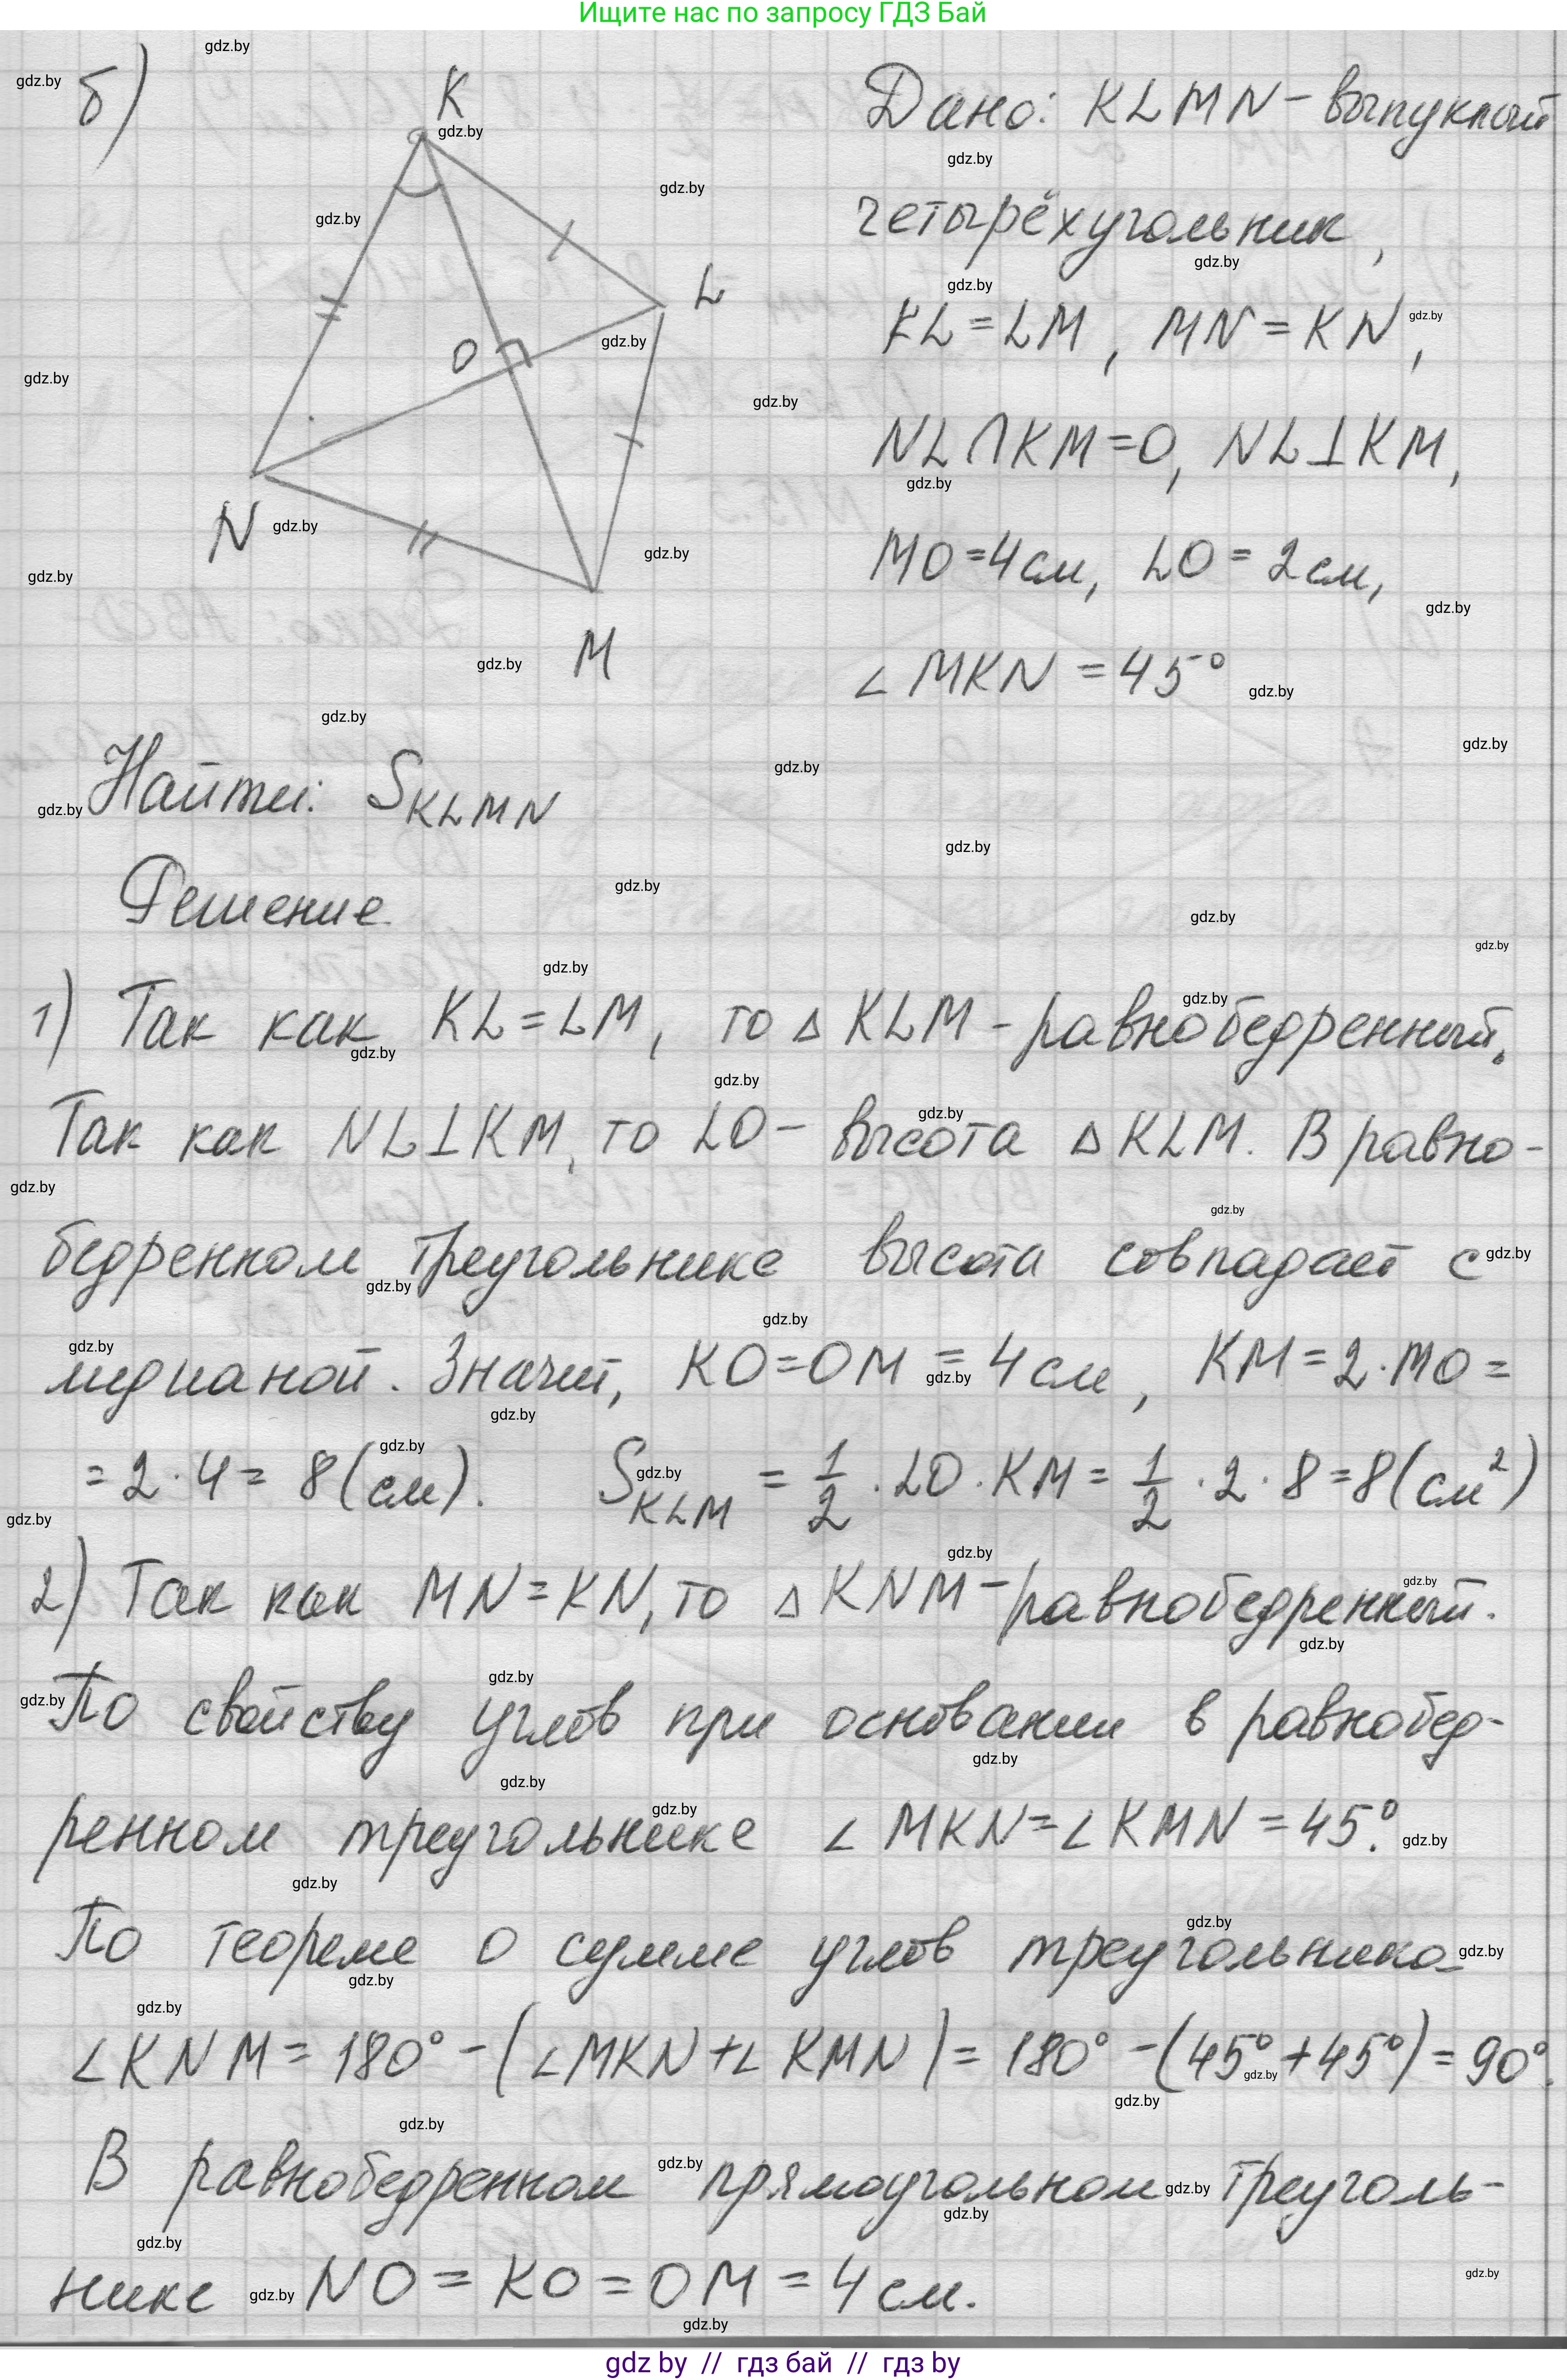 Ищите нас по запросу ГДЗ Бай
б)
K
L
O
N
M
Дано: KLMN - выпуклый
четырёхугольник,
KL = LM, MN = KN,
NL ∩ KM = O, NL ⊥ KM,
MO = 4 см, LO = 2 см,
∠ MKN = 45°
Найти: S KLMN
Решение
1) Так как KL = LM, то △ KLM - равнобедренный.
Так как NL ⊥ KM, то LO - высота △ KLM. В равно-
бедренном треугольнике высота совпадает с
медианой. Значит, KO = OM = 4 см, KM = 2 · MO =
= 2 · 4 = 8 (см). S KLM = 1/2 · LO · KM = 1/2 · 2 · 8 = 8 (см²)
2) Так как MN = KN, то △ KNM - равнобедренный.
По свойству углов при основании в равнобед-
ренном треугольнике ∠ MKN = ∠ KMN = 45°.
По теореме о сумме углов треугольника
∠ KNM = 180° - (∠ MKN + ∠ KMN) = 180° - (45° + 45°) = 90°.
В равнобедренном прямоугольном треуголь-
нике NO = KO = OM = 4 см.
gdz by // гдз бай // гдз by